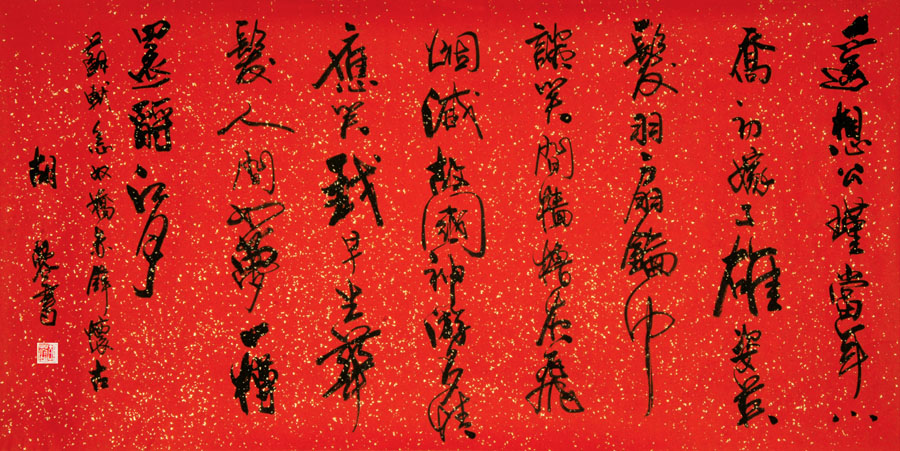 遥想公瑾當年小
喬初嫁了雄姿英
髮羽扇綸巾
談笑間牆櫓灰飛
烟滅故國神游多情
應笑我早生華
髮人間如夢一樽
還酹江月
蘇軾念奴嬌赤壁懷古
胡 書